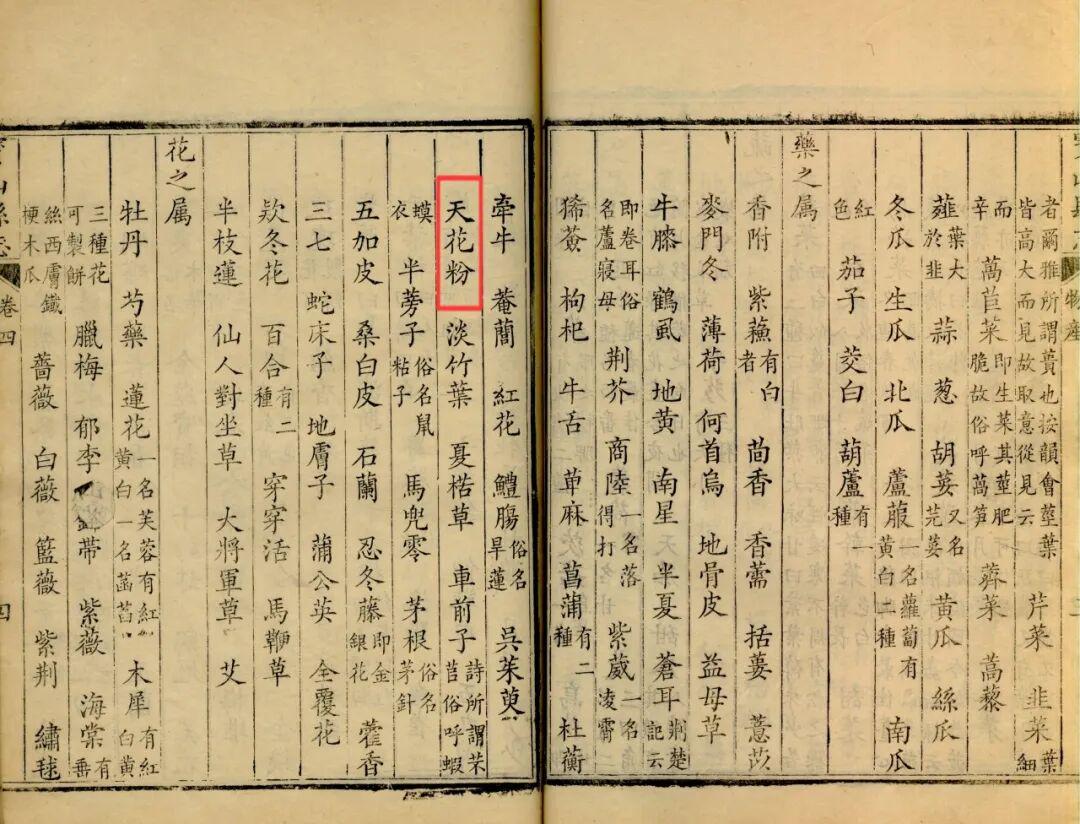 者爾雅所謂蕢也按韻會莖葉皆高大而見故取意從見云 芹菜 韭菜葉細
而辛 萵苣菜即生菜其莖肥脆故俗呼萵笋 薺菜 蒿藜
薤葉大於韭 蒜 葱 胡荽又名芫荽 黃瓜 絲瓜
冬瓜 生瓜 北瓜 蘆菔一名蘿蔔有黄白二種 南瓜
紅色 茄子 茭白 葫蘆有一種
藥之属
香附 紫蘓有白者 茴香 香薷 括蔞 薏苡
麥門冬 薄荷 何首烏 地骨皮 益母草
牛膝 鶴虱 地黄 南星 半夏 蒼耳荆楚記云
即卷耳俗名蘆寢母 荆芥 商陸一名落得打 紫葳一名凌霄
豨薟 枸杞 牛舌 萆麻 菖蒲有二種 杜蘅
物產
牽牛 菴藺 紅花 鱧腸俗名旱蓮 吳茱萸
天花粉 淡竹葉 夏枯草 車前子詩所謂芣苢俗呼蝦
蟆衣 半蒡子俗名鼠粘子 馬兜零 茅根俗名茅針
五加皮 桑白皮 石蘭 忍冬藤即金銀花 藿香
三七 蛇床子 地膚子 蒲公英 全覆花
欵冬花 百合有二種 穿穿活 馬鞭草
半枝蓮 仙人對坐草 大將軍草 艾
花之属
牡丹 芍藥 蓮花一名芙蓉有紅黄白一名菡萏 木犀有紅白黄
三種花可製餅 臘梅 郁李 帶 紫薇 海棠有垂
絲西膚鐵梗木瓜 薔薇 白薇 籃薇 紫荆 繡毬
卷四
四